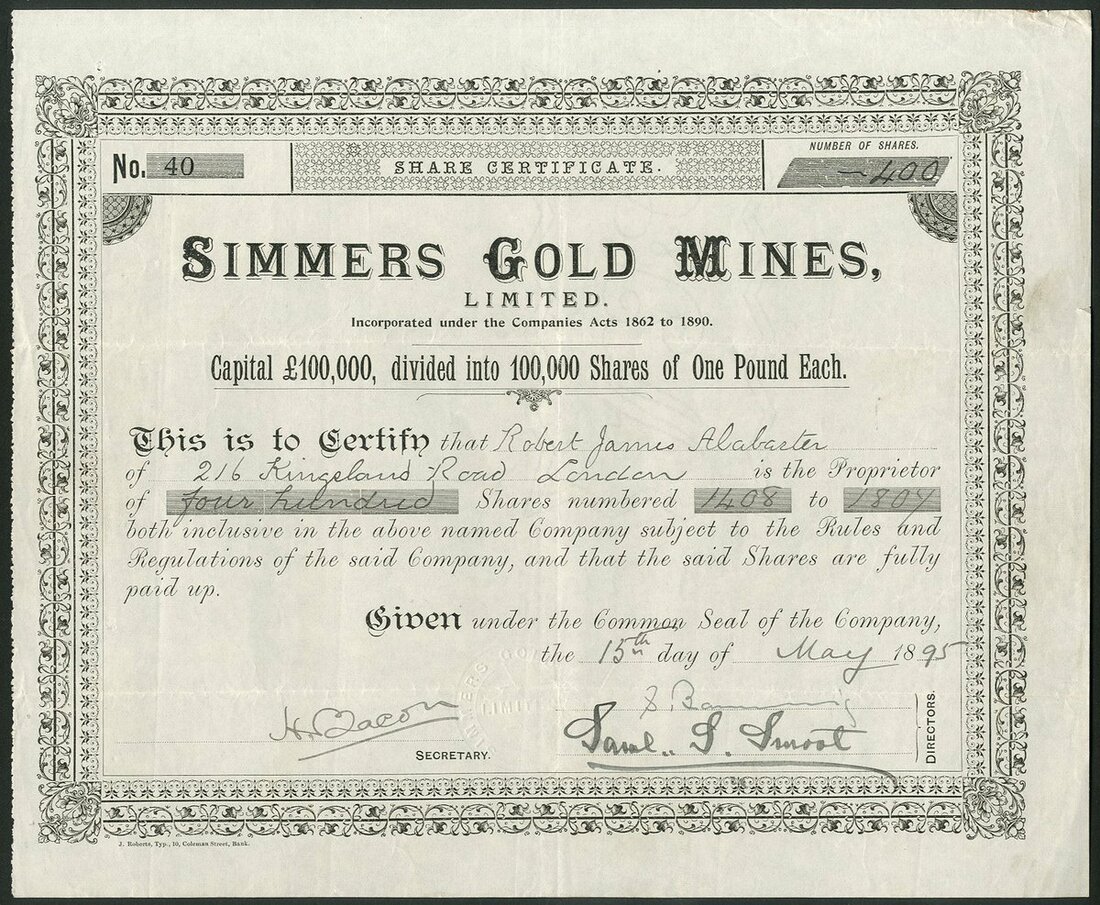 No. 40
SHARE CERTIFICATE.
NUMBER OF SHARES.
400
SIMMERS GOLD MINES,
LIMITED.
Incorporated under the Companies Acts 1862 to 1890.
Capital £100,000, divided into 100,000 Shares of One Pound Each.
This is to Certify that Robert James Alabaster
of 216 Kingsland Road London is the Proprietor
of four hundred Shares numbered 1408 to 1807
both inclusive in the above named Company subject to the Rules and
Regulations of the said Company, and that the said Shares are fully
paid up.
Given under the Common Seal of the Company,
the 15th day of May 1895
H. Bacon
SECRETARY.
Saml. S. Smoot
DIRECTORS.
J. Roberts, Typ., 10, Coleman Street, Bank.